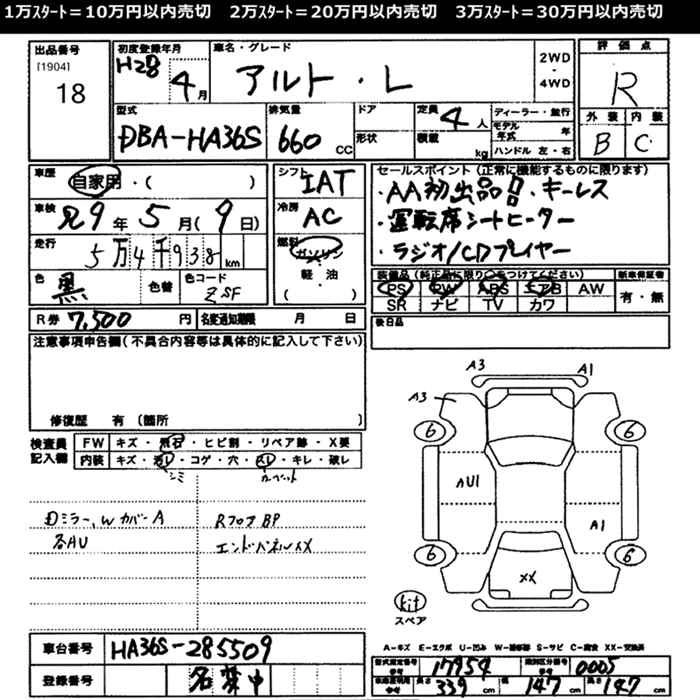 1万ｽﾀｰﾄ＝10万円以内売切　2万ｽﾀｰﾄ＝20万円以内売切　3万ｽﾀｰﾄ＝30万円以内売切
出品番号
[1904]
18
初度登録年月
H28
4月
車名・グレード
アルト・L
2WD
・
4WD
評価点
R
外装 内装
B C
型式
DBA-HA36S
排気量
660 cc
ドア
形状
定員
4人
積載
kg
ディーラー・並行
モデル年式 年
ハンドル 左・右
車歴
自家用・( )
車検
R9年5月(9日)
走行
5万4千938km
色
黒
色替
色コード
ZSF
シフト
IAT
冷房
AC
燃料
ガソリン
軽・油
( )
セールスポイント (正常に機能するものに限ります)
・AA初出品・キーレス
・運転席シートヒーター
・ラジオ/CDプレイヤー
装備品(純正品に限り○をつけてください)
PS PW ABS エアB AW
SR ナビ TV カワ
新車保証書
有・無
R券 7,500円
名変通知期限 月 日
後日品
注意事項申告欄(不具合内容等は具体的に記入して下さい)
修復歴 有 (箇所 )
検査員
記入欄
FW キズ・飛石・ヒビ割・リペア跡・X要
内装 キズ・汚レ・コゲ・穴・スレ・キレ・破レ
シミ
カーペット
Dミラー、Wカバー A
各AU
Rフロア BP
エンドパネルXX
A3
A1
A3
6
6
AU1
A1
6
6
XX
kit
スペア
A-キズ E-エクボ U-凹み W-補修跡 S-サビ C-腐食 XX-交換済
車台番号
HA36S-285509
登録番号
名変中
型式指定番号
参考
17954
類別区分番号
参考
0005
車両寸法
参考
長
339cm
幅
147cm
高
147cm